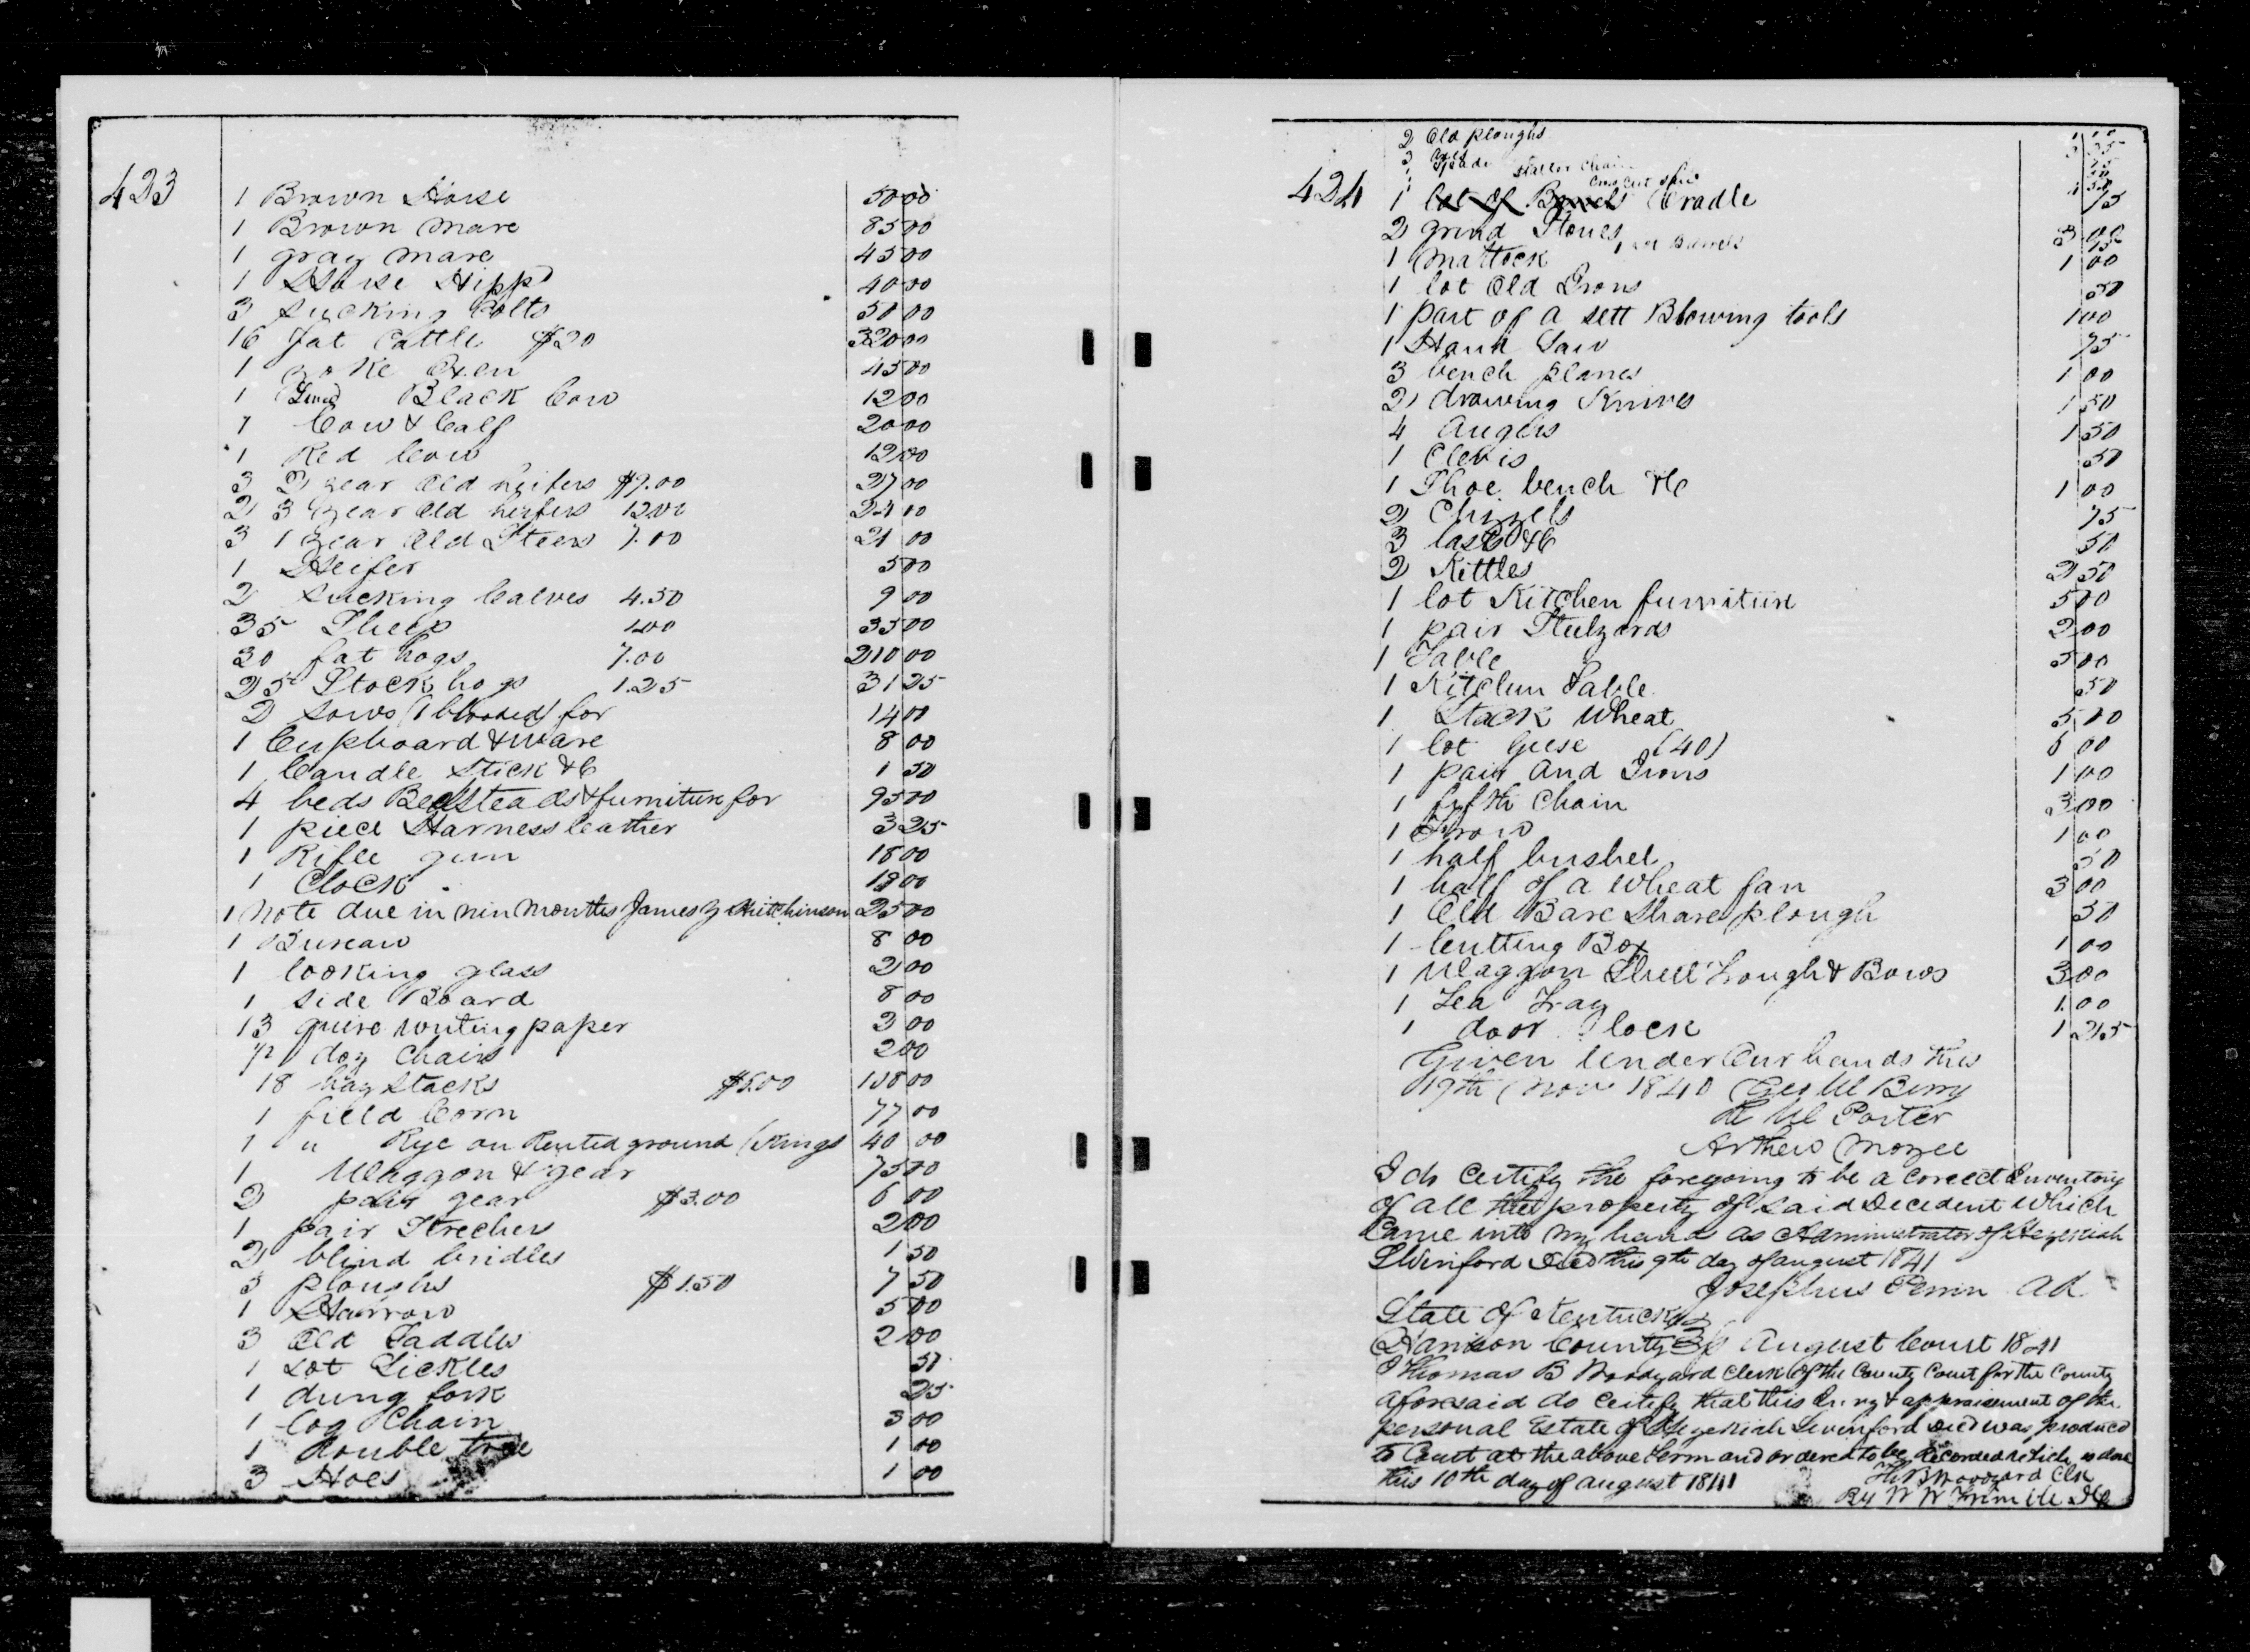 423
1 Brown Horse 50 00
1 Brown Mare 85 00
1 gray Mare 45 00
1 Horse Hippd 40 00
3 sucking Colts 50 00
16 fat Cattle $20 320 00
1 yoke Oxen 45 00
1 Black Cow 12 00
1 Cow & Calf 20 00
1 Red Cow 12 00
3 2 year Old heifers $9.00 27 00
2 3 year Old heifers 12.00 24 00
3 1 year Old Steers 7.00 21 00
1 Heifer 5 00
2 sucking Calves 4.50 9 00
35 Sheep 1.00 35 00
30 fat hogs 7.00 210 00
25 Stock hogs 1.25 31 25
2 Sows (1 blooded) for 14 00
1 Cupboard & Ware 8 00
1 Candle Stick &C 1 50
4 beds Bedsteads & furniture for 95 00
1 piece Harness leather 3 25
1 Rifle gun 18 00
1 Clock 00
1 Note due in nine Months James Hutchinson 25 00
1 Bureau 8 00
1 looking glass 2 00
1 Side Board 8 00
13 quire writing paper 2 00
doz Chairs 2 00
18 hay stacks 00
1 field Corn 77 00
1 " Rye on Rented ground (Kings 40 00
1 Waggon & gear 75 00
2 pair gear $3.00 6 00
1 pair Strechers 2 00
2 blind bridles 1 50
5 ploughs $1.50 7 50
1 Harrow 5 00
3 Old Saddles 2 00
1 Lot Sickles 50
1 dung fork 25
1 log Chain 3 00
1 double tree 1 00
3 Hoes 1 00
424
2 Old ploughs
3 Axes
1 Spade
Chain
Cross Cut Saw
1 lot of Barrels Cradle 75
2 grind Stones 3 00
1 Mattock 1 00
1 lot Old Irons 50
1 part of a sett Blowing tools 1 00
1 Hand Saw 75
3 bench planes 1 00
2 drawing Knives 1 50
4 Augers 1 50
1 Clevis 50
1 Shoe bench &C 1 00
2 Chizzels 75
3 lasts &C 50
2 Kettles 2 50
1 lot Kitchen furniture 5 00
1 pair Steelyards 2 00
1 Table 5 00
1 Kitchen Table 50
1 Stack Wheat 5 00
1 lot Geese (40) 00
1 pair And Irons 1 00
1 fifth Chain 3 00
1 Frow 1 00
1 half bushel 50
1 half of a Wheat fan 3 00
1 Old Bare Share plough 50
1 Cutting Box 1 00
1 Waggon Sheet Trough & Bows 3 00
1 Tea Tray 1.00
1 door lock 1 25
Given Under Our hands this
19th Nov 1840 Geo W Berry
H W Porter
Arthers Mozee
I do Certify the foregoing to be a Correct Inventory
of all the property of said Decedent Which
Came into my hands as Administrator of Hezekiah
Swinford Decd this 9th day of august 1841
Josephus Perrin Ad
State of Kentucky
Harrison County August Court 1841
I Thomas B Woodyard Clerk of the County Court for the County
aforesaid do Certify that this Invy & appraisement of the
personal Estate of Hezekiah Swinford Decd was produced
to Court at the above term and ordered to be Recorded which is done
this 10th day of august 1841 Th B Woodyard Clk
By W W Trimble